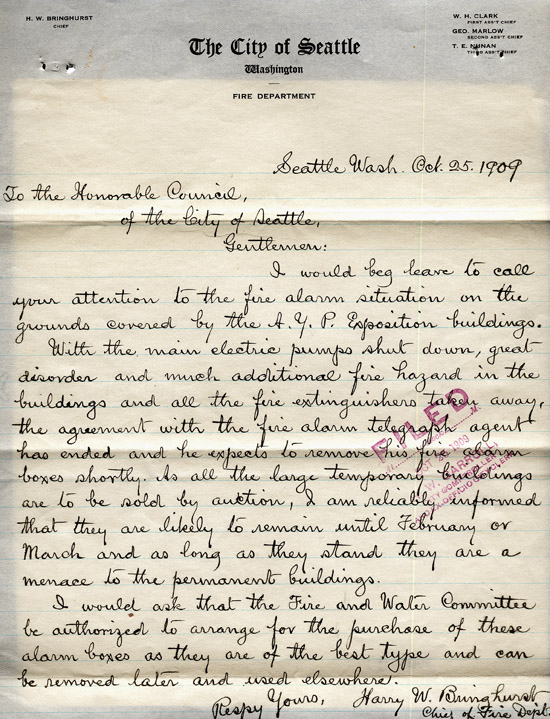 H. W. BRINGHURST
CHIEF
W. H. CLARK
FIRST ASS'T CHIEF
GEO. MARLOW
SECOND ASS'T CHIEF
T. E. NUNAN
THIRD ASS'T CHIEF
The City of Seattle
Washington
FIRE DEPARTMENT
Seattle Wash. Oct. 25. 1909
To the Honorable Council,
of the City of Seattle,
Gentlemen:
I would beg leave to call
your attention to the fire alarm situation on the
grounds covered by the A. Y. P. Exposition buildings.
With the main electric pumps shut down, great
disorder and much additional fire hazard in the
buildings and all the fire extinguishers taken away,
the agreement with the fire alarm telegraph agent
has ended and he expects to remove his fire alarm
boxes shortly. As all the large temporary buildings
are to be sold by auction, I am reliably informed
that they are likely to remain until February or
March and as long as they stand they are a
menace to the permanent buildings.
I would ask that the Fire and Water Committee
be authorized to arrange for the purchase of these
alarm boxes as they are of the best type and can
be removed later and used elsewhere.
Respy Yours, Harry W. Bringhurst
Chief of Fire Dept.
FILED
1909